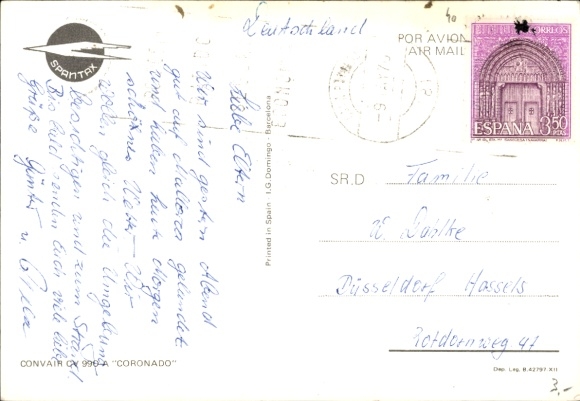 Deutschland
40
POR AVION
AIR MAIL
CORREOS
ESPAÑA 3,50 PTAS
SPANTAX
Liebe Eltern
Wir sind gestern Abend
gut auf Mallorca gelandet
und haben heute Morgen
schönes Wetter. Wir
wollen gleich die Umgebung
besichtigen und zum Strand.
Bis bald senden Euch viele liebe
Grüße Günter u.
Printed in Spain - I.G. Domingo - Barcelona
SR.D Familie
W. Dahlke
Düsseldorf Hassels
Rotdornweg 47
CONVAIR CV 990 A "CORONADO"
Dep. Leg. B.42797-XII
3,-